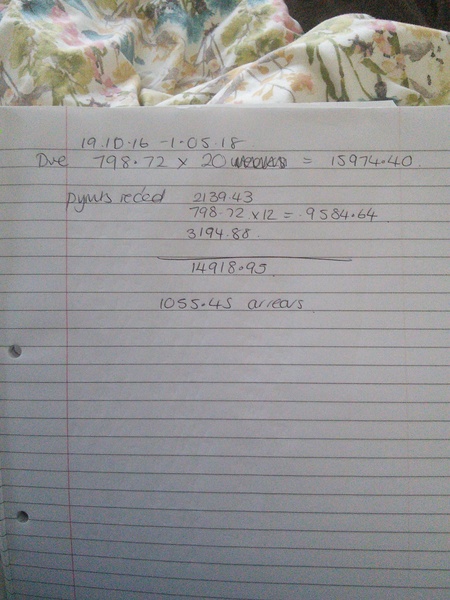 19.10.16 - 1.05.18
Due 798.72 x 20 = 15974.40.
pymts recded 2139.43
798.72 x 12 = .9584.64
3194.88.
14918.95
1055.45 arrears.